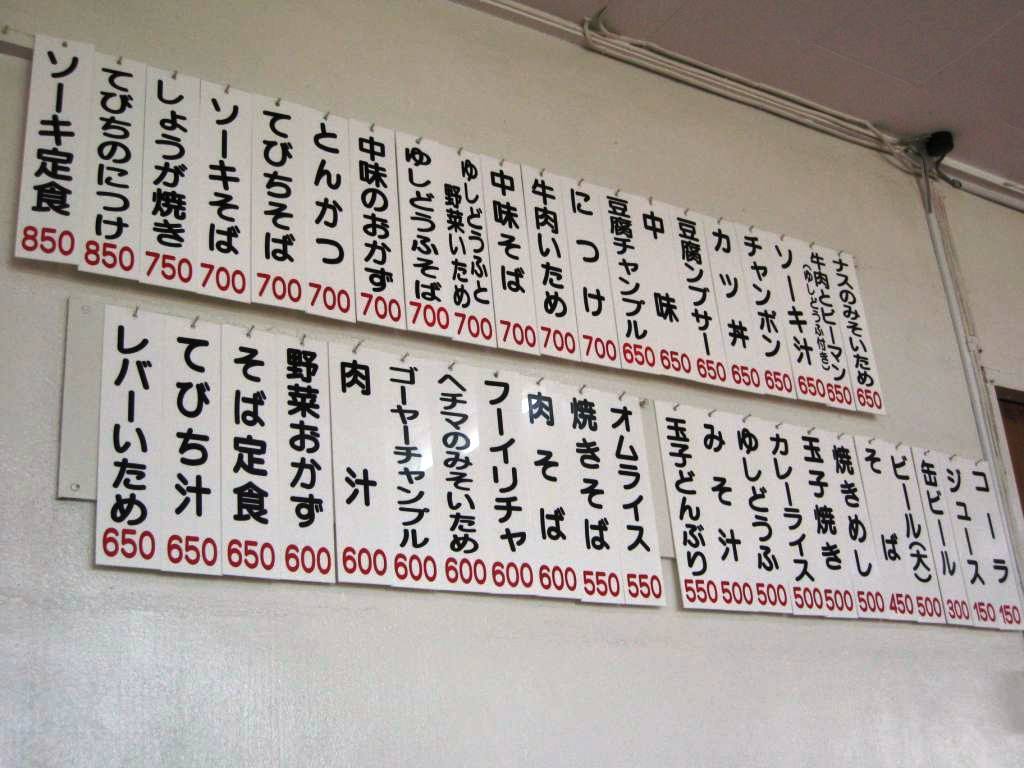 ソーキ定食
850
てびちのにつけ
850
しょうが焼き
750
ソーキそば
700
てびちそば
700
とんかつ
700
中味のおかず
700
ゆしどうふそば
700
ゆしどうふと
野菜いため
700
中味そば
700
牛肉いため
700
につけ
700
豆腐チャンプル
650
中味
650
豆腐ンブサー
650
カツ丼
650
チャンポン
650
ソーキ汁
650
牛肉とピーマン
(ゆしどうふ付き)
650
ナスのみそいため
650
レバーいため
650
てびち汁
650
そば定食
650
野菜おかず
600
肉汁
600
ゴーヤーチャンプル
600
ヘチマのみそいため
600
フーイリチャ
600
肉そば
600
焼きそば
550
オムライス
550
玉子どんぶり
550
みそ汁
500
ゆしどうふ
500
カレーライス
500
玉子焼き
500
焼きめし
500
そば
450
ビール(大)
500
缶ビール
300
ジュース
150
コーラ
150